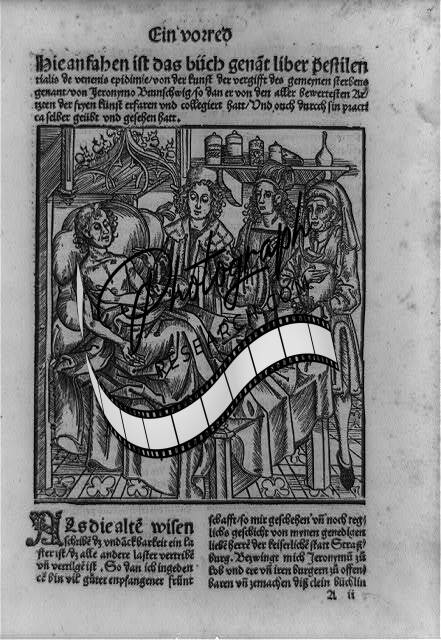 Ein vorred
Hie anfahen ist das bůch genãt liber pestilen
tialis de venenis epidimie/von der kunst der vergifft des gemeynen sterbens
genant/von Jeronymo Brunschwig/so dan er von den aller bewertesten Ar/
tzten der fryen kunst erfaren und collegiert hatt/Und ouch durch sin practi
ca selber geübt und gesehen hatt.
Photograph
RESHAREWOOD
Als die altẽ wisen
schribẽ dz undãckbarkeit ein la
ster ist/dz alle andere laster vertribẽ
vñ vertilgẽ ist. So dan ich ingeden
cẽ bin vil gůter enpfangener frünt
schafft/so mir geschehen vñ noch teg/
lichs geschicht von mynen genedigen
liebẽ herrẽ der keiserlichẽ statt Straß/
burg. Bezwingt mich Jeronymũ zů
lob und ere vñ iren burgern zů offen/
baren vñ zemachen diß clein bůchlin
A ii